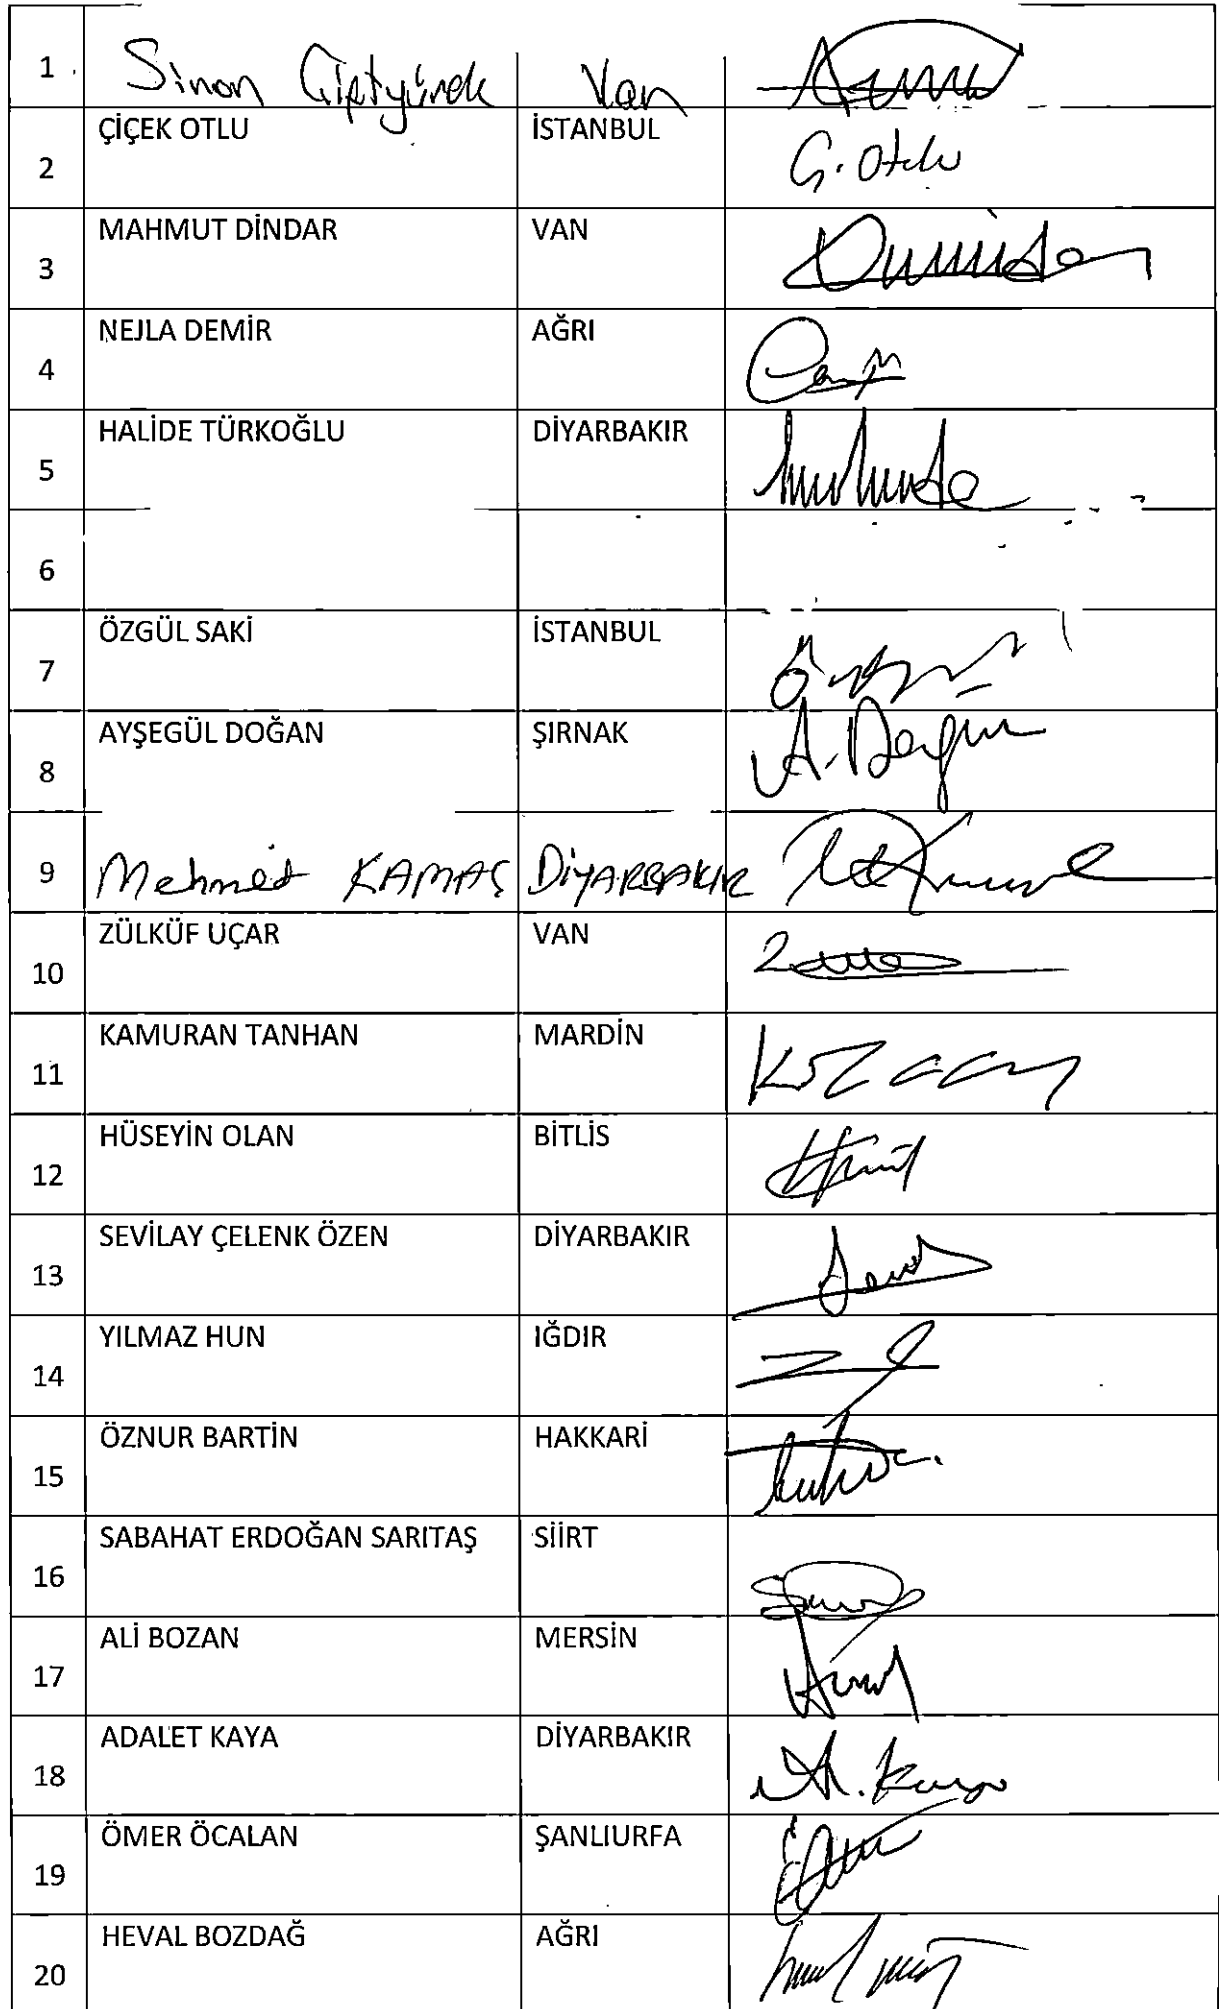 1 Sinan Çiftyürek Van
2 ÇİÇEK OTLU İSTANBUL Ç. Otlu
3 MAHMUT DİNDAR VAN
4 NEJLA DEMİR AĞRI
5 HALİDE TÜRKOĞLU DİYARBAKIR
6
7 ÖZGÜL SAKİ İSTANBUL
8 AYŞEGÜL DOĞAN ŞIRNAK
9 Mehmet KAMAÇ DİYARBAKIR
10 ZÜLKÜF UÇAR VAN
11 KAMURAN TANHAN MARDİN
12 HÜSEYİN OLAN BİTLİS
13 SEVİLAY ÇELENK ÖZEN DİYARBAKIR
14 YILMAZ HUN IĞDIR
15 ÖZNUR BARTİN HAKKARİ
16 SABAHAT ERDOĞAN SARITAŞ SİİRT
17 ALİ BOZAN MERSİN
18 ADALET KAYA DİYARBAKIR A. Kaya
19 ÖMER ÖCALAN ŞANLIURFA
20 HEVAL BOZDAĞ AĞRI